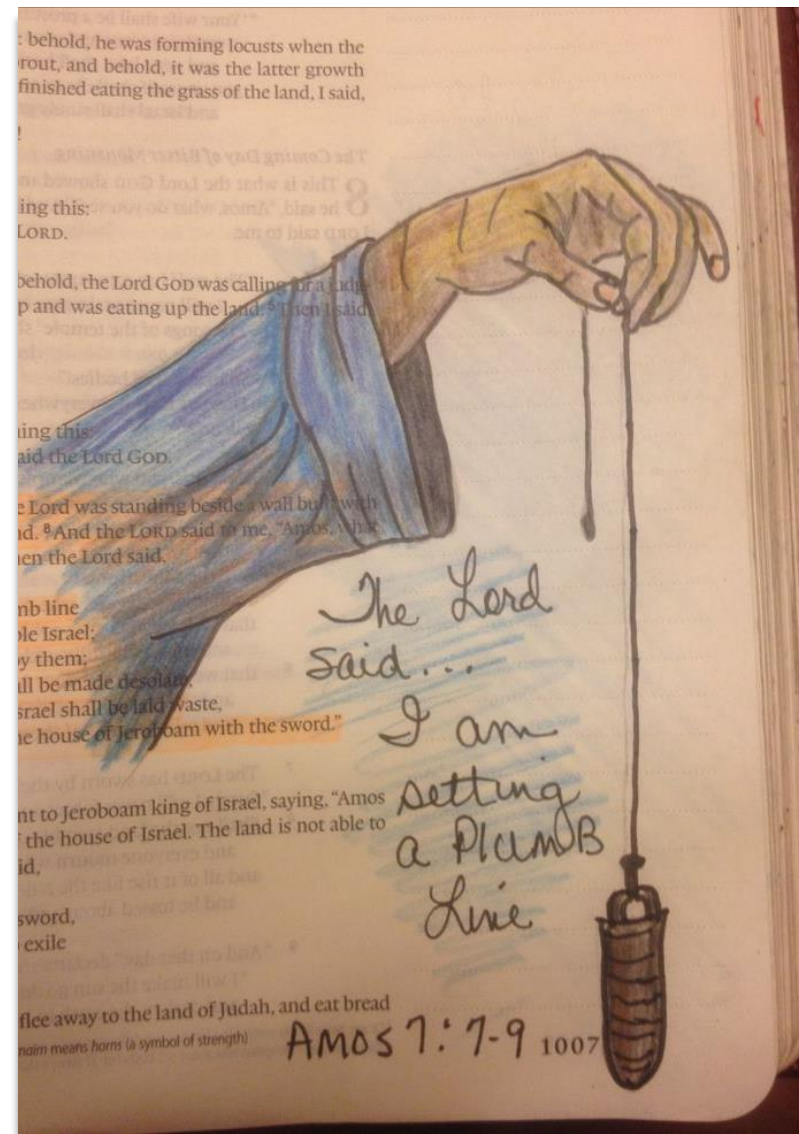 : behold, he was forming locusts when the
rout, and behold, it was the latter growth
finished eating the grass of the land, I said,
!
ing this:
LORD.
behold, the Lord GOD was calling for a judg-
p and was eating up the land. Then I said
ing this:
aid the Lord GOD.
e Lord was standing beside a wall built with
d. 8 And the LORD said to me, "Amos, what
en the Lord said,
mb line
ple Israel;
y them;
all be made desolate,
srael shall be laid waste,
e house of Jeroboam with the sword."
The Lord
said...
I am
setting
a PlumB
Line
nt to Jeroboam king of Israel, saying, "Amos
the house of Israel. The land is not able to
id,
sword,
exile
flee away to the land of Judah, and eat bread
naim means horns (a symbol of strength)
AMOS 7:7-9 1007